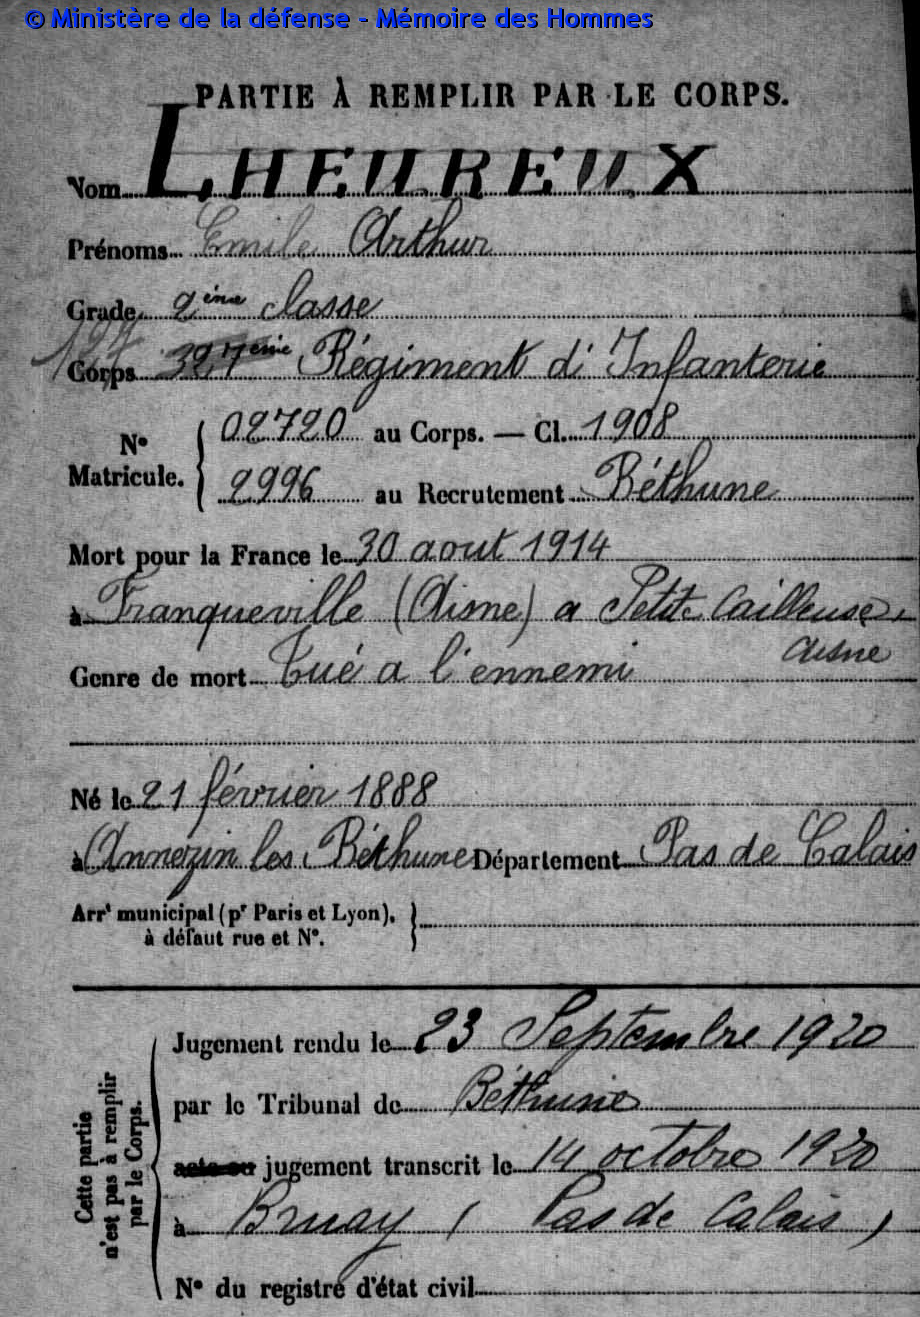 © Ministère de la défense - Mémoire des Hommes
PARTIE À REMPLIR PAR LE CORPS.
Nom LHEUREUX
Prénoms Emile Arthur
Grade 2ème classe
127 Corps 327ème Régiment d'Infanterie
N° Matricule. { 02720 au Corps. — Cl. 1908
2996 au Recrutement Béthune
Mort pour la France le 30 aout 1914
à Franqueville (Aisne) a Petite Cailleuse,
Aisne
Genre de mort Tué a l'ennemi
Né le 21 février 1888
à Annezin les Béthune Département Pas de Calais
Arrt municipal (pr Paris et Lyon),
à défaut rue et N°.
Cette partie
n'est pas à remplir
par le Corps.
Jugement rendu le 23 Septembre 1920
par le Tribunal de Béthune
acte ou jugement transcrit le 14 octobre 1920
à Bruay (Pas de Calais)
N° du registre d'état civil